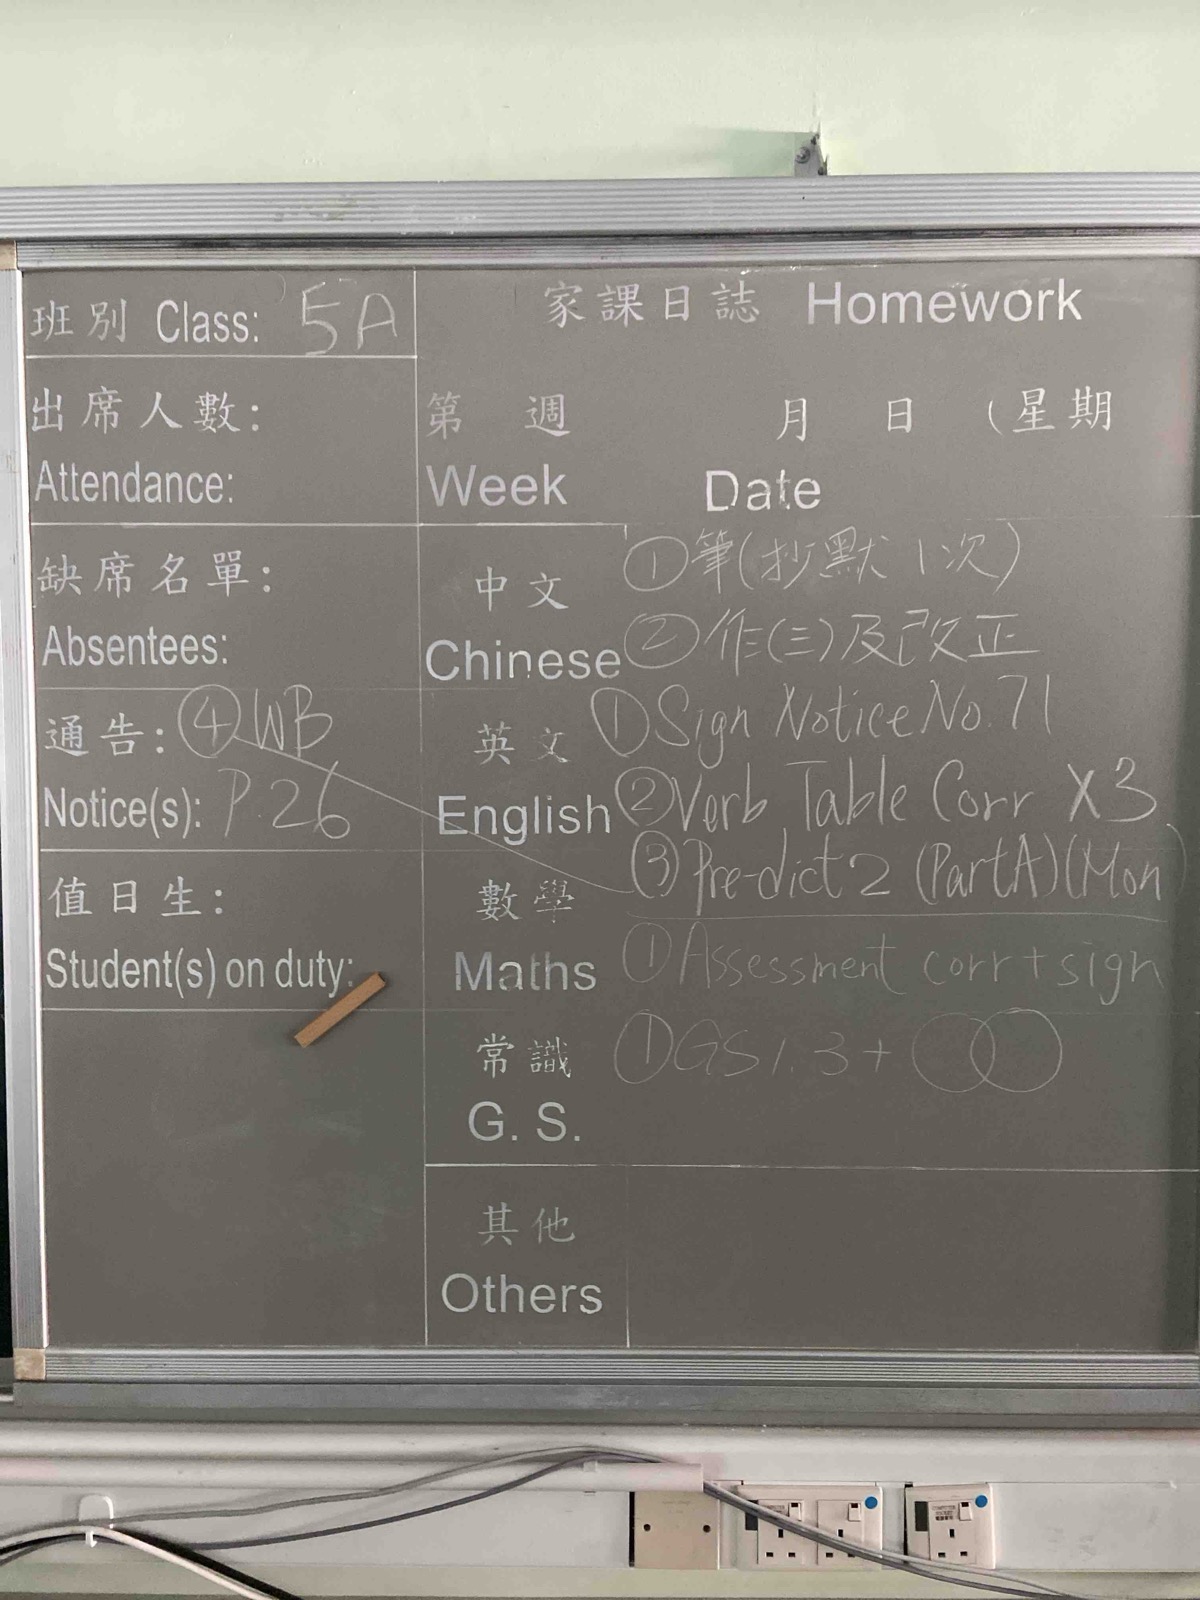 班別 Class: 5A
出席人數:
Attendance:
缺席名單:
Absentees:
通告: ④ WB
Notice(s): P.26
值日生:
Student(s) on duty:
家課日誌 Homework
第 週 月 日 (星期
Week Date
中文
Chinese
①筆(抄默1次)
②作(三)及改正
英文
English
①Sign Notice No. 71
②Verb Table Corr X3
③Pre-dict 2 (Part A) (Mon)
數學
Maths
①Assessment corr + sign
常識
G. S.
①GS 1.3 +
其他
Others